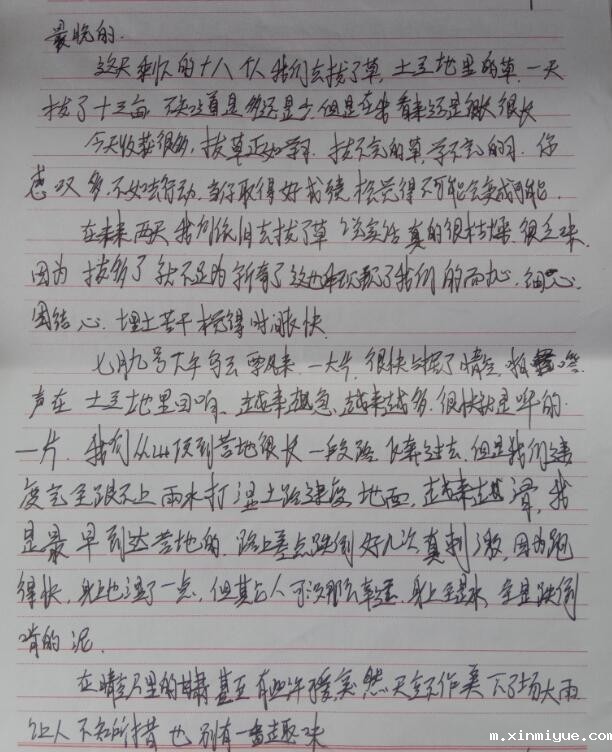 最晚的.
这天剩下的十八个人我们去拔了草,土豆地里的草,一天
拔了十三亩,不知道是多还是少,但是在我看来还是很长很长
今天收获很多,拔草正如学习.拔不完的草,学不完的习.你
感叹多,不如去行动,当你取得好成绩,松觉得不可能会变成可能.
在未来两天我们依旧去拔了草 说实话真的很枯燥.很乏味.
因为拔多了就不足为新奇了这也体现了我们的耐心.细心.
团结心.埋土苦干 觉得时间很快.
七月九号下午乌云 来,一大片,很快 了晴空,
声在土豆地里回响,越来越急,越来越多.很快就是哗的
一片.我们从山顶到营地很长一段路 过去.但是我们速
度完全跟不上雨水打湿土路 地面,越来越滑,我
是最早到达营地的.路上差点跌倒好几次真刺激,因为跑
得快,身上也湿了一点,但其它人可没那么幸运.身上全是水,全是跌倒
啃的泥.
在晴空万里的甘肃甚至有些许 突然天空作美下了场大雨
让人不知所措也别有一番趣味
m.xinmiyue.com